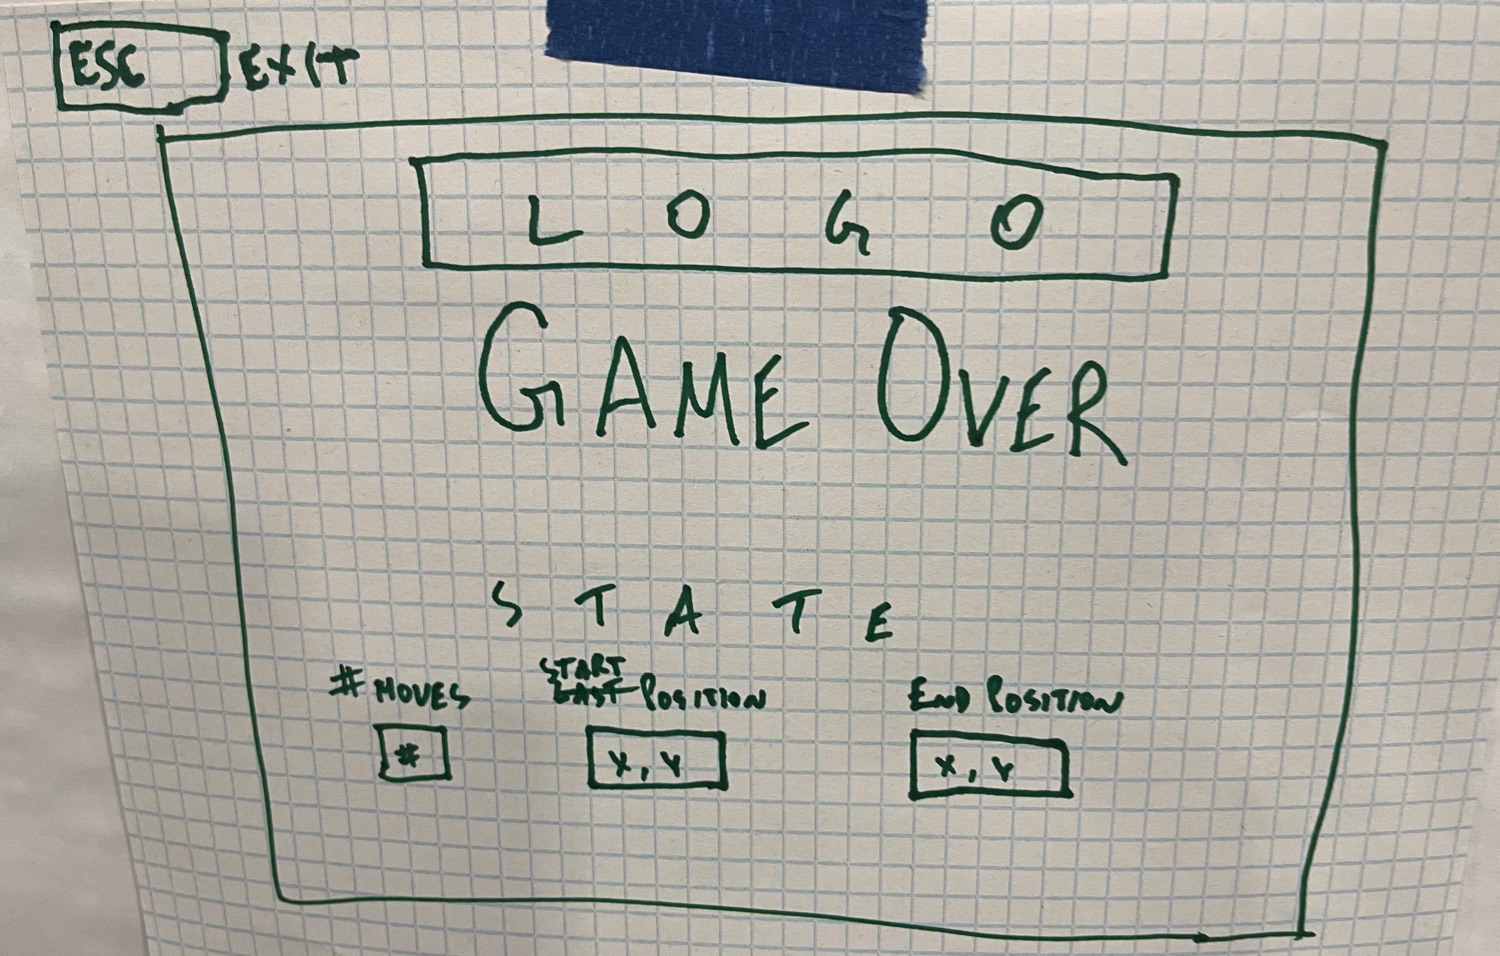 ESC EXIT
LOGO
GAME OVER
STATE
# MOVES START LAST POSITION END POSITION
# X, Y X, Y